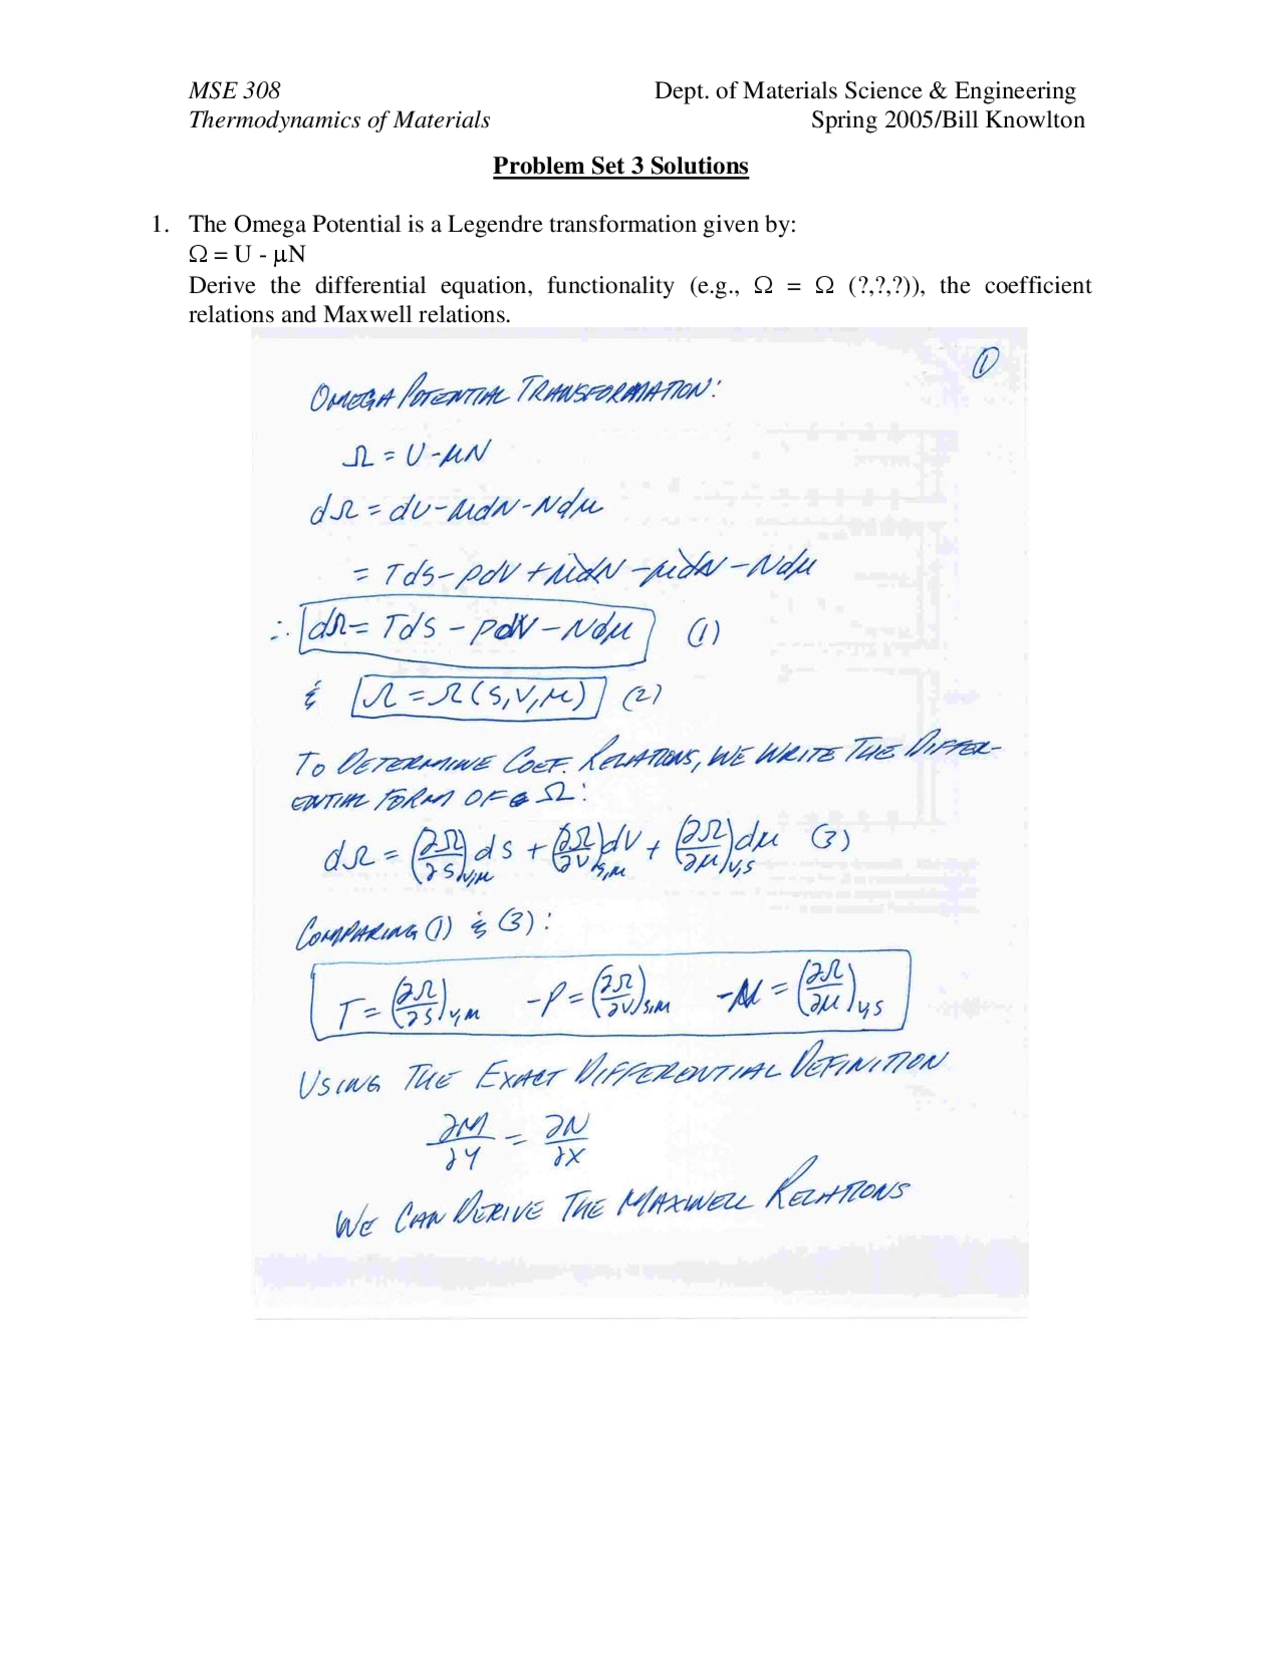 MSE 308 Dept. of Materials Science & Engineering
Thermodynamics of Materials Spring 2005/Bill Knowlton
Problem Set 3 Solutions
1. The Omega Potential is a Legendre transformation given by:
Ω = U - μN
Derive the differential equation, functionality (e.g., Ω = Ω (?,?,?)), the coefficient
relations and Maxwell relations.
①
OMEGA POTENTIAL TRANSFORMATION:
Ω = U-μN
dΩ = dU-μdN-Ndμ
= TdS-PdV+μdN-μdN-Ndμ
∴ dΩ = TdS - PdV - Ndμ (1)
& Ω = Ω(S,V,μ) (2)
TO DETERMINE COEF. RELATIONS, WE WRITE THE DIFFER-
ENTIAL FORM OF Ω:
dΩ = (∂Ω/∂S)V,μ dS + (∂Ω/∂V)S,μ dV + (∂Ω/∂μ)V,S dμ (3)
COMPARING (1) & (3):
T = (∂Ω/∂S)V,μ -P = (∂Ω/∂V)S,μ -N = (∂Ω/∂μ)V,S
USING THE EXACT DIFFERENTIAL DEFINITION
∂M/∂Y = ∂N/∂X
WE CAN DERIVE THE MAXWELL RELATIONS